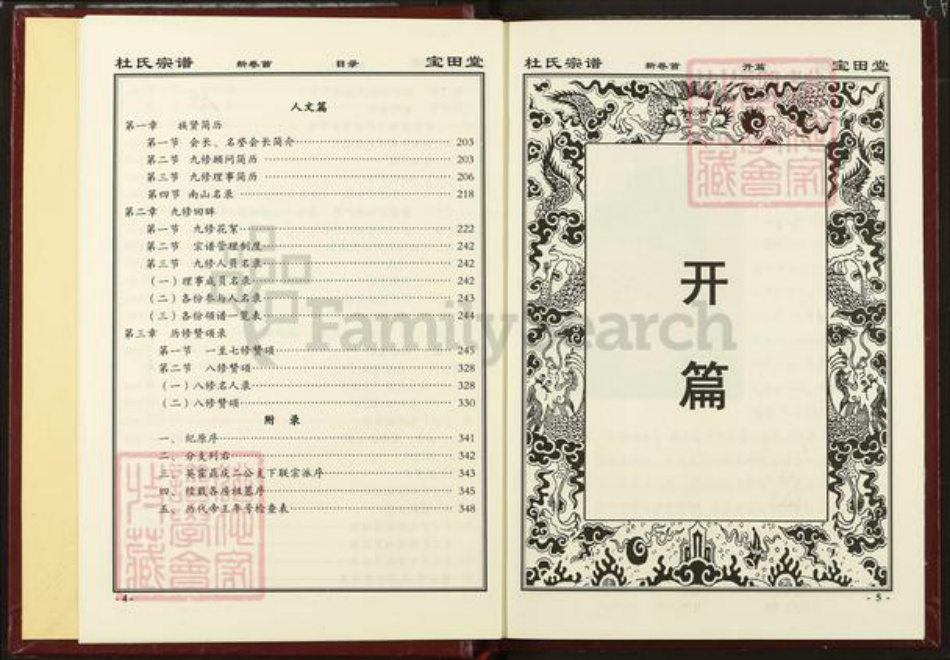 杜氏宗谱 新卷首 目录 宝田堂
人文篇
第一章 族贤简历
第一节 会长、名誉会长简介 203
第二节 九修顾问简历 203
第三节 九修理事简历 206
第四节 南山名录 218
第二章 九修回眸
第一节 九修花絮 222
第二节 宗谱管理制度 242
第三节 九修人员名录 242
(一)理事成员名录 242
(二)各份参与人名录 243
(三)各份领谱一览表 244
第三章 历修赞颂录
第一节 一至七修赞颂 245
第二节 八修赞颂 328
(一)八修名人录 328
(二)八修赞颂 330
附 录
一、纪原序 341
二、分支列右 342
三、英霍嵓庆二公支下联宗派序 343
四、续载各房祖墓序 345
五、历代帝王年号检查表 348
- 4 -
杜氏宗谱 新卷首 开篇 宝田堂
开
篇
- 5 -
FamilySearch